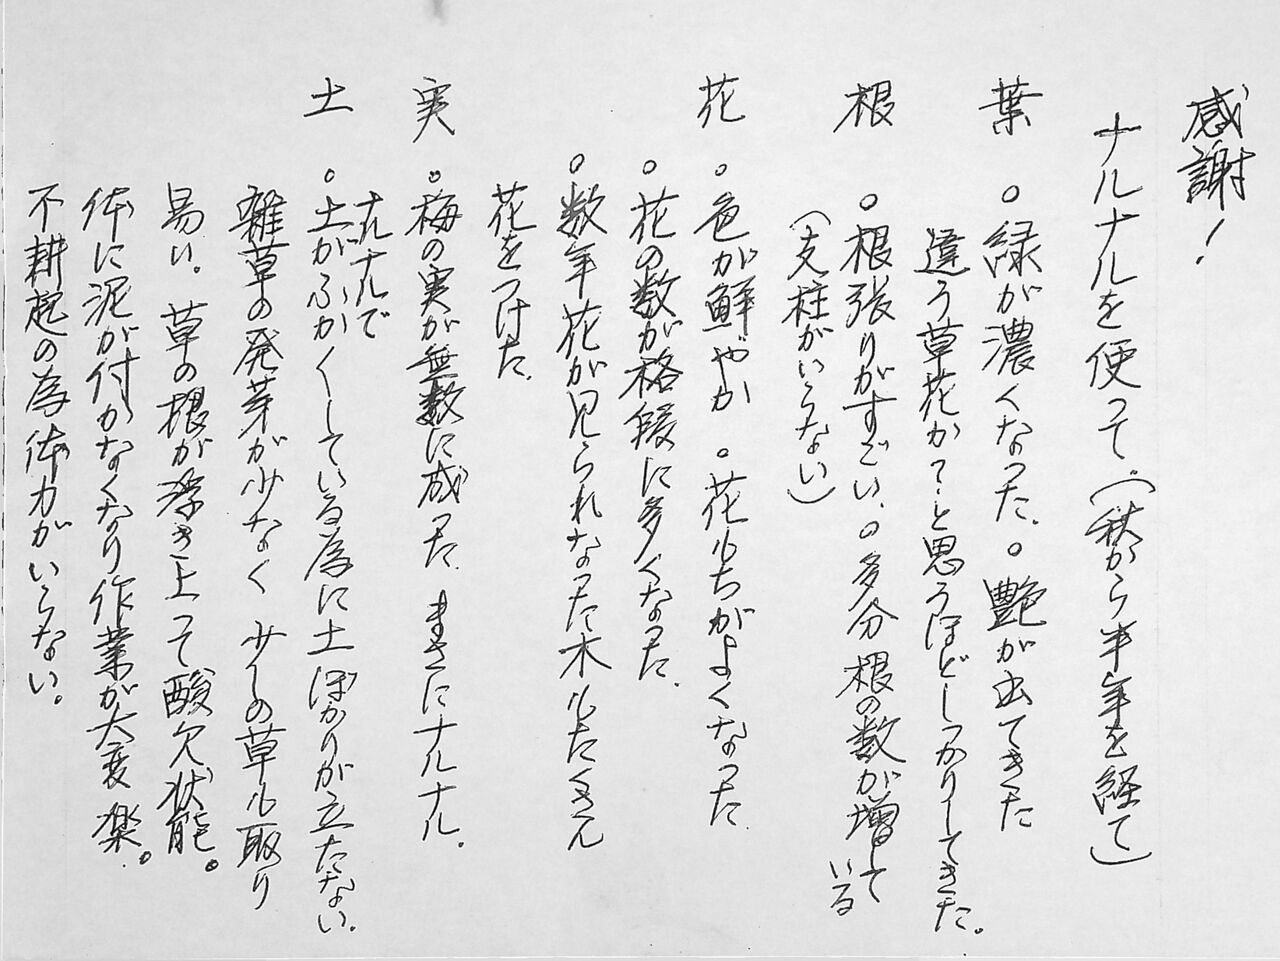 感謝!
ナルナルを使って(秋から半年を経て)
葉 ○緑が濃くなった、○艶が出てきた
違う草花か?と思うほどしっかりしてきた。
根 ○根張りがすごい、○多分根の数が増して
いる
(支柱がいらない)
花 ○色が鮮やか ○花もちがよくなった
○花の数が格段に多くなった、
○数年花が見られなった木もたくさん
花をつけた、
実 ○梅の実が無数に成った、まさにナルナル。
ナルナルで
土 ○土がふかくしている為に土ぼかりが立たない、
雑草の発芽が少なく 少しの草も取り
易い。草の根が浮き上って酸欠状態。
体に泥が付かなくなり作業が大変楽。
不耕起の為体力がいらない。